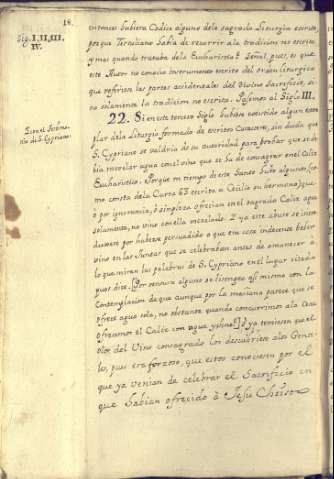 18.
Sig. I, II, III,
IV.
entonces hubiera Codice alguno dela sagrada Liturgia escrito,
porque Tertuliano habia de recurrir ala tradicion no escrita
y mas quando trataba dela Eucharistia? Señal, pues, es que
este Autor no conocio instrumento escrito del orden liturgico
que refiriese las partes accidentales del Divino Sacrificio, si
no solamente la tradicion no escrita. Pasemos al Siglo III.
22. Si en este tercero Siglo hubiera existido algun exem
plar dela Liturgia formado de escritos Canones, sin duda que
S. Cypriano se valdria de su autoridad para probar que se de
bia mezclar agua con el vino que se ha de consagrar en el Caliz
Eucharistico. Porque en tiempo de este Santo hubo algunos (co
mo consta dela Carta 63 escrita a Cecilio su hermano) que
ò por ignorancia, ò simpleza ofrecian en el sagrado Caliz agua
solamente, no vino con ella mezclado. Y ya este abuso se intro
duxese por haberse persuadido a que era cosa indecente beber
vino en las que se celebraban antes de amanecer à
lo que miran las palabras de S. Cypriano en el lugar citado
pues dice: [Por ventura alguno se lisongea asi mismo con la
contemplacion de que aunque por la mañana parece que se
ofrece agua sola, no obstante quando concurrimos ala Cena
ofrecemos el Caliz con agua y vino:] ò ya temiesen que el
olor del Vino consagrado los descubriese alos Genti
les, pues era forzoso, que estos conociesen por el
que ya venian de celebrar el Sacrificio en
que habian ofrecido à Jesu Christo